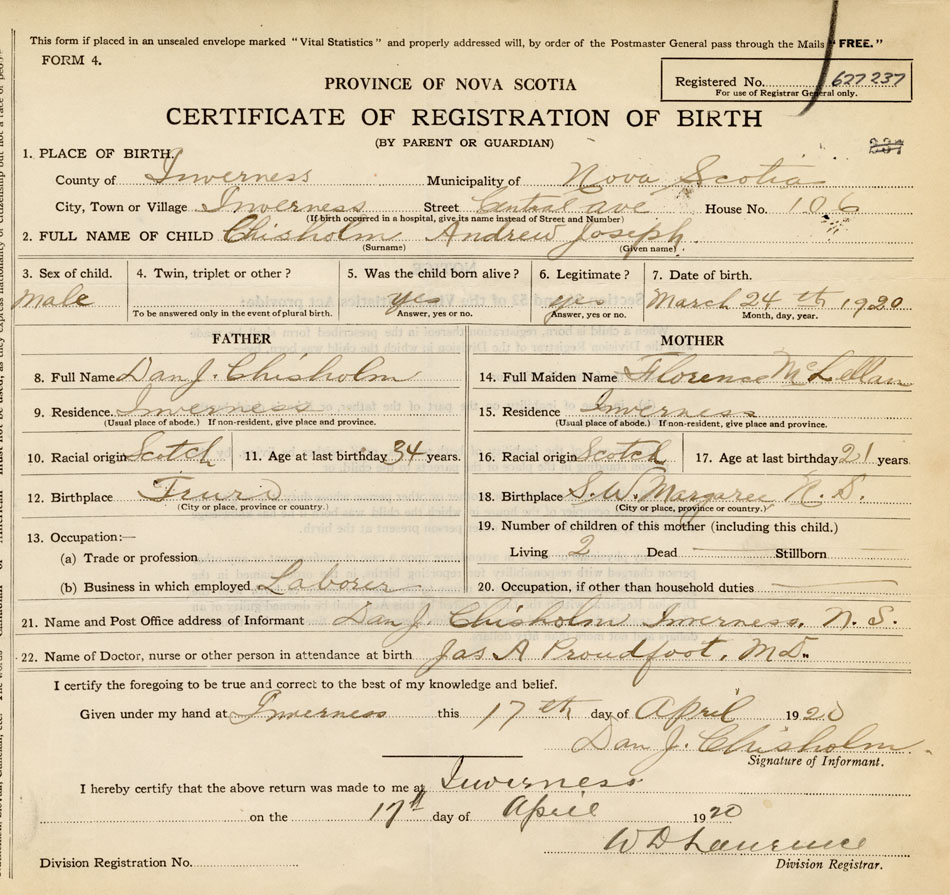 This form if placed in an unsealed envelope marked "Vital Statistics" and properly addressed will, by order of the Postmaster General pass through the Mails "FREE."
FORM 4.
Registered No. 677237
For use of Registrar General only.
PROVINCE OF NOVA SCOTIA
CERTIFICATE OF REGISTRATION OF BIRTH
(BY PARENT OR GUARDIAN)
1. PLACE OF BIRTH.
County of Inverness Municipality of Nova Scotia
City, Town or Village Inverness Street Central ave House No. 106
(If birth occurred in a hospital, give its name instead of Street and Number)
2. FULL NAME OF CHILD Chisholm Andrew Joseph
(Surname) (Given name)
3. Sex of child. 4. Twin, triplet or other? 5. Was the child born alive? 6. Legitimate? 7. Date of birth.
Male yes yes March 24th 1920
To be answered only in the event of plural birth. Answer, yes or no. Answer, yes or no. Month, day, year.
FATHER MOTHER
8. Full Name Dan J. Chisholm 14. Full Maiden Name Florence McLellan
9. Residence. Inverness 15. Residence Inverness
(Usual place of abode.) If non-resident, give place and province. (Usual place of abode.) If non-resident, give place and province.
10. Racial origin Scotch 11. Age at last birthday 34 years. 16. Racial origin Scotch 17. Age at last birthday 21 years
12. Birthplace Truro 18. Birthplace S.W. Margaree N.S.
(City or place, province or country.) (City or place, province or country.)
13. Occupation:— 19. Number of children of this mother (including this child.)
(a) Trade or profession Living 2 Dead Stillborn
(b) Business in which employed Laborer 20. Occupation, if other than household duties
21. Name and Post Office address of Informant Dan J. Chisholm Inverness, N.S.
22. Name of Doctor, nurse or other person in attendance at birth Jas A Proudfoot, M.D.
I certify the foregoing to be true and correct to the best of my knowledge and belief.
Given under my hand at Inverness this 17th day of April 1920
Dan J. Chisholm
Signature of Informant.
I hereby certify that the above return was made to me at Inverness
on the 17th day of April 1920
W D Lawrence
Division Registration No. Division Registrar.